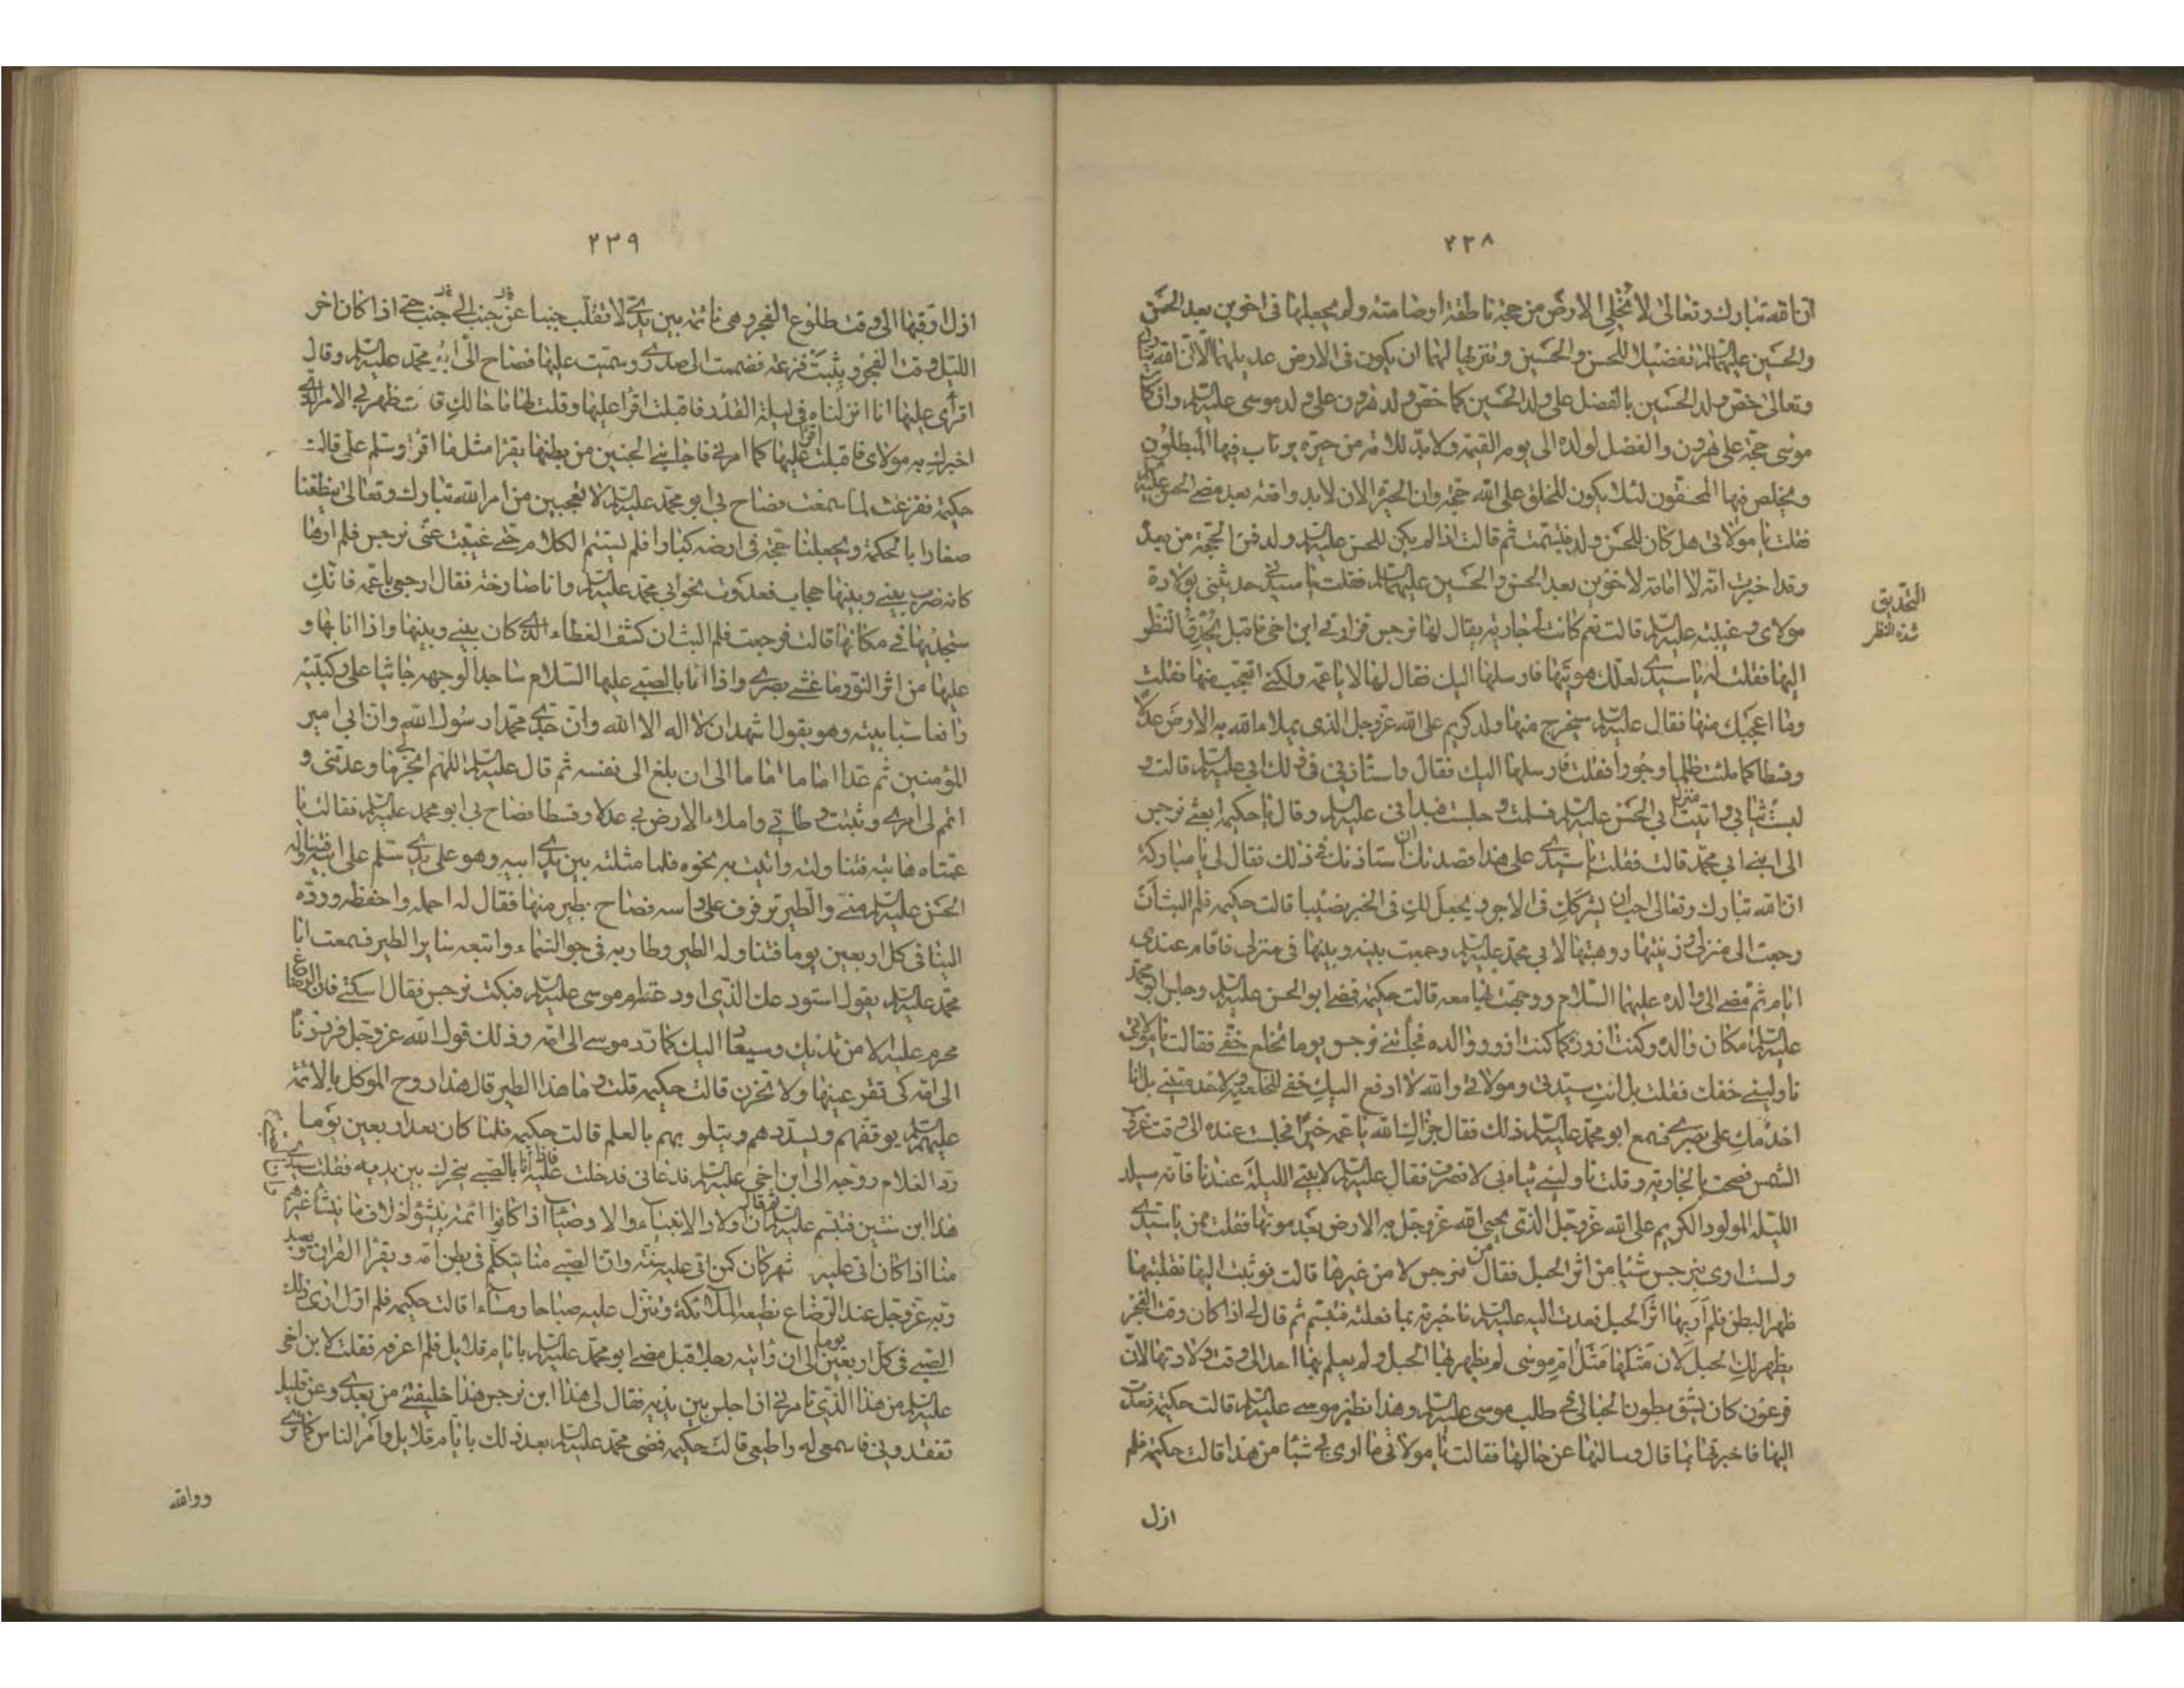 ٢٣٨
ان الله تبارك وتعالى لا يخلي الارض من حجة ناطقة او صامتة ولم يجعلها في اخوين بعد الحسن
والحسين عليهما السلم تفضيلا للحسن والحسين وتنزيها لهما ان يكون في الارض عديلهما الا ان الله تبارك
وتعالى خص ولد الحسين بالفضل على ولد الحسن كما خص ولد هرون على ولد موسى عليه السلم وان كان
موسى حجة على هرون والفضل لولده الى يوم القيمة ولا بد للامة من حيرة يرتاب فيها المبطلون
ويخلص فيها المحقون لئلا يكون للخلق على الله حجة وان الحيرة الان لا بد واقعة بعد مضي الحسن عليه
فقلت يا مولاتي هل كان للحسن ولد فتبسمت ثم قالت اذا لم يكن للحسن عليه السلم ولد فمن الحجة من بعده
وقد اخبرت انه لا امامة لاخوين بعد الحسن والحسين عليهما السلم فقلت يا سيدتي حدثيني بولادة
مولاي وغيبته عليه السلم قالت نعم كانت لي جارية يقال لها نرجس فزارني ابن اخي فاقبل يحدق النظر
اليها فقلت له يا سيدي لعلك هويتها فارسلها اليك فقال لها لا يا عمة ولكني اتعجب منها فقلت
وما اعجبك منها فقال عليه السلم سيخرج منها ولد كريم على الله عز وجل الذي يملا الله به الارض عدلا
وقسطا كما ملئت ظلما وجورا فقلت فارسلها اليك فقال واستاذني في ذلك ابي عليه السلم قالت و
لبست ثيابي واتيت منزل ابي الحسن عليه السلم فسلمت وجلست فبداني عليه السلم وقال يا حكيمة ابعثي نرجس
الى ابني ابي محمد قالت فقلت يا سيدي على هذا قصدتك ان استاذنك في ذلك فقال لي يا مباركة
ان الله تبارك وتعالى احب ان يشركك في الاجر ويجعل لك في الخير نصيبا قالت حكيمة فلم البث ان
رجعت الى منزلي وزينتها ووهبتها لابي محمد عليه السلم وجمعت بينه وبينها في منزلي فاقام عندي
اياما ثم مضى الى والده عليهما السلام ووجهت بها معه قالت حكيمة فمضى ابو الحسن عليه السلم وجلس ابو محمد
عليه السلم مكان والده وكنت ازوره كما كنت ازور والده فجائتني نرجس يوما تخلع خفي فقالت يا مولاتي
ناوليني خفك فقلت بل انت سيدتي ومولاتي والله لا ادفع اليك خفي لتخلعيه ولا لتخدميني بل انا
اخدمك على بصري فسمع ابو محمد عليه السلم ذلك فقال جزاك الله يا عمة خيرا فجلست عنده الى وقت غروب
الشمس فصحت بالجارية وقلت ناوليني ثيابي لانصرف فقال عليه السلم لا بيتي الليلة عندنا فانه سيلد
الليلة المولود الكريم على الله عز وجل الذي يحيي الله عز وجل به الارض بعد موتها فقلت ممن يا سيدي
ولست ارى بنرجس شيئا من اثر الحبل فقال من نرجس لا من غيرها قالت فوثبت اليها فقلبتها
ظهرا لبطن فلم ار بها اثر الحبل فعدت اليه عليه السلم فاخبرته بما فعلته فتبسم ثم قال لي اذا كان وقت الفجر
يظهر لك الحبل لان مثلها مثل ام موسى لم يظهر بها الحبل ولم يعلم بها احد الى وقت ولادتها لان
فرعون كان يشق بطون الحبالى في طلب موسى عليه السلم وهذا نظير موسى عليه السلم قالت حكيمة فعدت
اليها فاخبرتها بما قال وسالتها عن حالها فقالت يا مولاتي ما ارى بي شيئا من هذا قالت حكيمة فلم
ازل
التحديق
شدة النظر
٢٣٩
ازل ارقبها الى وقت طلوع الفجر وهي نائمة بين يدي لا تقلب جنبا عن جنب الى جنب حتى اذا كان اخر
الليل وقت الفجر وثبت فزعة فضممت الى صدري وسميت عليها فصاح الي ابو محمد عليه السلم وقال
اقرأي عليها انا انزلناه في ليلة القدر فاقبلت اقرا عليها وقلت لها ما حالك قالت ظهر بي الامر الذي
اخبرك به مولاي فاقبلت اقرأ عليها كما امرني فاجابني الجنين من بطنها يقرا مثل ما اقرا وسلم علي قالت
حكيمة ففزعت لما سمعت فصاح بي ابو محمد عليه السلم لا تعجبين من امر الله تبارك وتعالى ينطقنا
صغارا بالحكمة ويجعلنا حجة في ارضه كبارا فلم يستتم الكلام حتى غيبت عني نرجس فلم ارها
كانه ضرب بيني وبينها حجاب فعدوت نحو ابي محمد عليه السلم وانا صارخة فقال ارجعي يا عمة فانك
ستجديها في مكانها قالت فرجعت فلم البث ان كشف الغطاء الذي كان بيني وبينها واذا انا بها و
عليها من اثر النور ما غشي بصري واذا انا بالصبي عليها السلام ساجدا لوجهه جاثيا على ركبتيه
رافعا سبابيته وهو يقول اشهد ان لا اله الا الله وان جدي محمدا رسول الله وان ابي امير
المؤمنين ثم عد اماما اماما الى ان بلغ الى نفسه ثم قال عليه السلم اللهم انجز لي ما وعدتني و
اتمم لي امري وثبت وطاتي واملاء الارض بي عدلا وقسطا فصاح بي ابو محمد عليه السلم فقالت يا
عمتاه هاتيه فتناولته واتيت به نحوه فلما مثلته بين يدي ابيه وهو على يدي سلم على ابيه فتناوله
الحسن عليه السلم مني والطير ترفرف على راسه فصاح بطير منها فقال له احمله واحفظه ورده
الينا في كل اربعين يوما فتناوله الطير وطار به في جو السماء واتبعه سايرا لطير فسمعت ابا
محمد عليه السلم يقول استودعك الذي اودعته ام موسى عليه السلم فبكت نرجس فقال اسكتي فان الرضاع
محرم عليه الا من ثديك وسيعاد اليك كما رد موسى الى امه وذلك قول الله عز وجل فرددناه
الى امه كي تقر عينها ولا تحزن قالت حكيمة قلت وما هذا الطير قال هذا روح الموكل بالائمة
عليهم السلم يوفقهم ويسددهم ويتلو بهم بالعلم قالت حكيمة فلما كان بعد اربعين يوما
رد الغلام ووجه الى ابن اخي عليه السلم فدعاني فدخلت عليه فاذا انا بالصبي يتحرك بين يديه فقلت سيدي
هذا ابن سنتين فتبسم عليه السلم ثم قال ان اولاد الانبياء والاوصياء اذا كانوا ائمة ينشؤ بخلاف ما ينشأ غيرهم
منا اذا كان اتى عليه شهر كان كمن اتى عليه سنة وان الصبي منا يتكلم في بطن امه ويقرا القران ويعبد
ربه عز وجل عند الرضاع تطيعه الملائكة وتنزل عليه صباحا ومساءا قالت حكيمة فلم ازل ارى ذلك
الصبي في كل اربعين يوما الى ان رايته رجلا قبل مضي ابو محمد عليه السلم بايام قلايل فلم اعرفه فقلت لابن اخي
عليه السلم من هذا الذي تامرني ان اجلس بين يديه فقال لي هذا ابن نرجس هذا خليفتي من بعدي وعن قليل
تفقدوني فاسمعي له واطيعي قالت حكيمة فمضى محمد عليه السلم بعد ذلك بايام قلايل وامر الناس كما ترى
ووالله